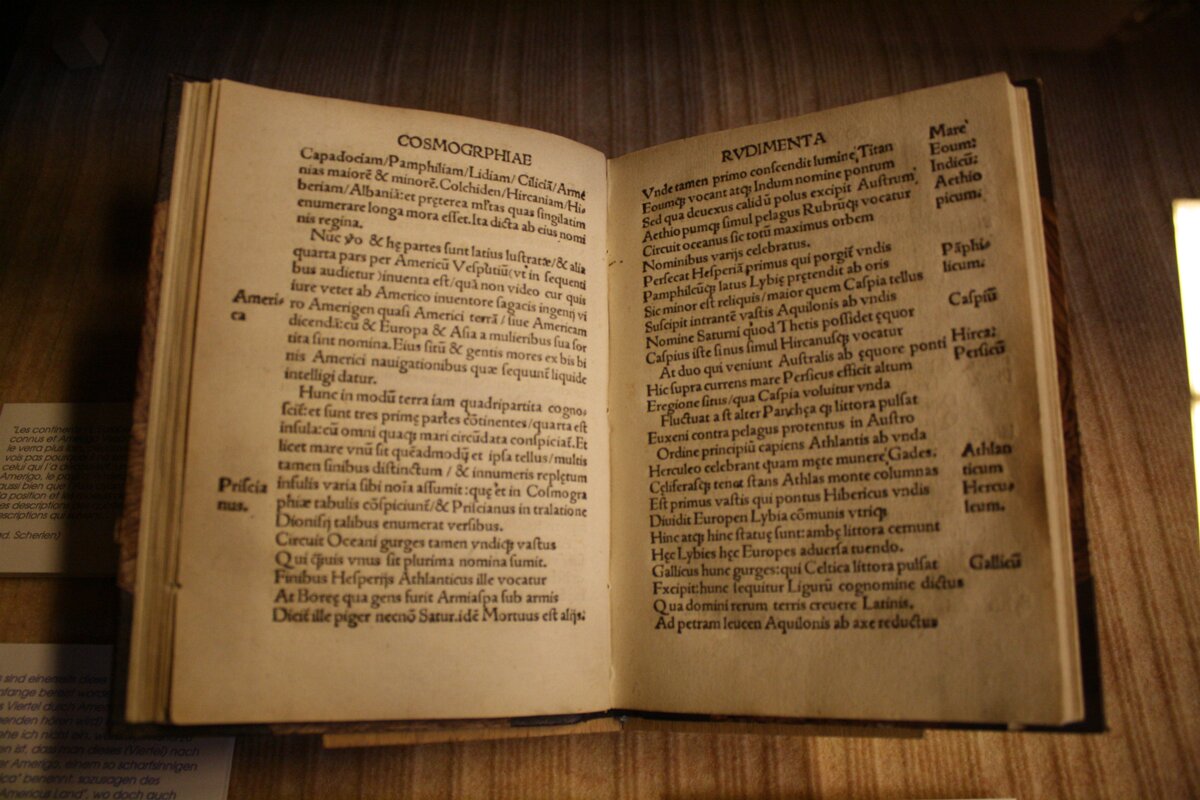 COSMOGRPHIAE
Capadociam/Pamphiliam/Lidiam/Ciliciā/Arme
nias maiorē & minorē. Colchiden/Hircaniam/Hi⸗
beriam/Albaniā: et pręterea ml'tas quas singilatim
enumerare longa mora esset. Ita dicta ab eius nomi
nis regina.
Nūc v̊o & hę partes sunt latius lustratæ/& alia
quarta pars per Americū Vesputiū(vt in sequenti
bus audietur)inuenta est/quā non video cur quis
iure vetet ab Americo inuentore sagacis ingenij vi
Ameri⸗
ca
ro Amerigen quasi Americi terrā/siue Americam
dicendā: cū & Europa & Asia a mulieribus sua sor
tita sint nomina. Eius sitū & gentis mores ex bis bi
nis Americi nauigationibus quæ sequunt liquide
intelligi datur.
Hunc in modū terra iam quadripartita cogno⸗
scit: et sunt tres primę partes cōtinentes/quarta est
insula: cū omni quaq̨ mari circūdata conspiciat. Et
licet mare vnū sit quēadmodū et ipsa tellus/multis
tamen sinibus distinctum/& innumeris repletum
Priscia
nus.
insulis varia sibi noīa assumit: quę et in Cosmogra
phiæ tabulis cōspiciunt/& Priscianus in tralatione
Dionisij talibus enumerat versibus.
Circuit Oceani gurges tamen vndiq̨ vastus
Qui q̄uis vnus sit plurima nomina sumit.
Finibus Hesperijs Athlanticus ille vocatur
At Boreę qua gens furit Armiaspa sub armis
Dicit ille piger necnō Satur. idē Mortuus est alijs:
RVDIMENTA
Vnde tamen primo conscendit lumine Titan
Eoumq̨ vocant atq̨ Indum nomine pontum
Sed qua deuexus calidū polus excipit Austrum,
Aethiopumq̨ simul pelagus Rubrūq̨ vocatur
Circuit oceanus sic totū maximus orbem
Nominibus varijs celebratus.
Mare
Eoum:
Indicū:
Aethio
picum:
Persecat Hesperiā primus qui porgit vndis
Pamphilcūq̨ latus Lybię prętendit ab oris
Sic minor est reliquis/maior quem Caspia tellus
Suscipit intrantē vastis Aquilonis ab vndis
Nomine Saturni quod Thetis possidet ęquor
Caspius iste sinus simul Hircanusq̨ vocatur
Pāphi⸗
licum:
Caspiū
At duo qui veniunt Australis ab ęquore ponti
Hirca:
Hic supra currens mare Persicus efficit altum
Persicū
Eregione situs/qua Caspia voluitur vnda
Fluctuat ast alter Panchęa q̨ littora pulsat
Euxeni contra pelagus protentus in Austro
Ordine principiū capiens Athlantis ab vnda
Herculeo celebrant quam męte munere Gades.
Cęliferasq̨ tenet stans Athlas monte columnas
Est primus vastis qui pontus Hibericus vndis
Diuidit Europen Lybia cōmunis vtriq̨
Athlan
ticum
Hercu⸗
leum.
Hinc atq̨ hinc statuę sunt: ambę littora cernunt
Hęc Lybies hęc Europes aduersa tuendo.
Gallicus hunc gurges: qui Celtica littora pulsat
Gallicū
Excipit: hunc sequitur Ligurū cognomine dictus
Qua domini rerum terris creuere Latinis.
Ad petram leucen Aquilonis ab axe reductus
"Les
connus et Amerigo
le verra plus
vois pas pourquoi
celui qui l'a
Amerigo, le
aussi bien que
la position et les
des descriptions
descriptions qui
ed. Scherlen)
sind einerseits diese
bereist worde
Viertel durch Ameri
hören wird)
ehe ich nicht ein,
ist, dass man dieses (Viertel) nach
er Amerigo, einem so scharfsinnigen
benennt, sozusagen des
Americus Land", wo doch auch